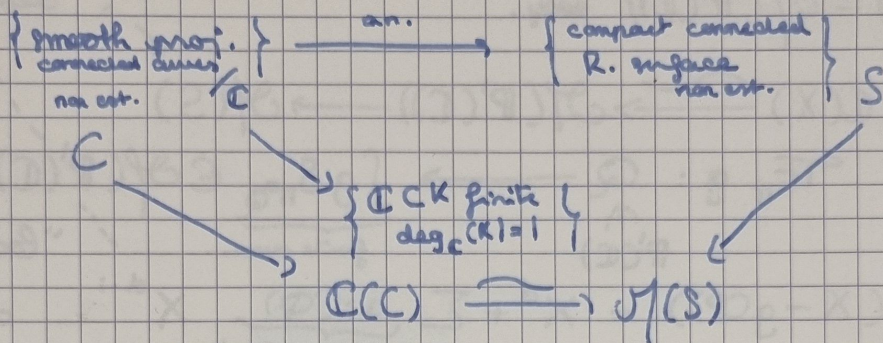 { smooth proj. connected curves / ℂ non cst. } —an.→ { compact connected R. surface non cst. }
C S
{ ℂ ⊂ K finite deg_ℂ(K)=1 }
ℂ(C) ⟶ ℳ(S)